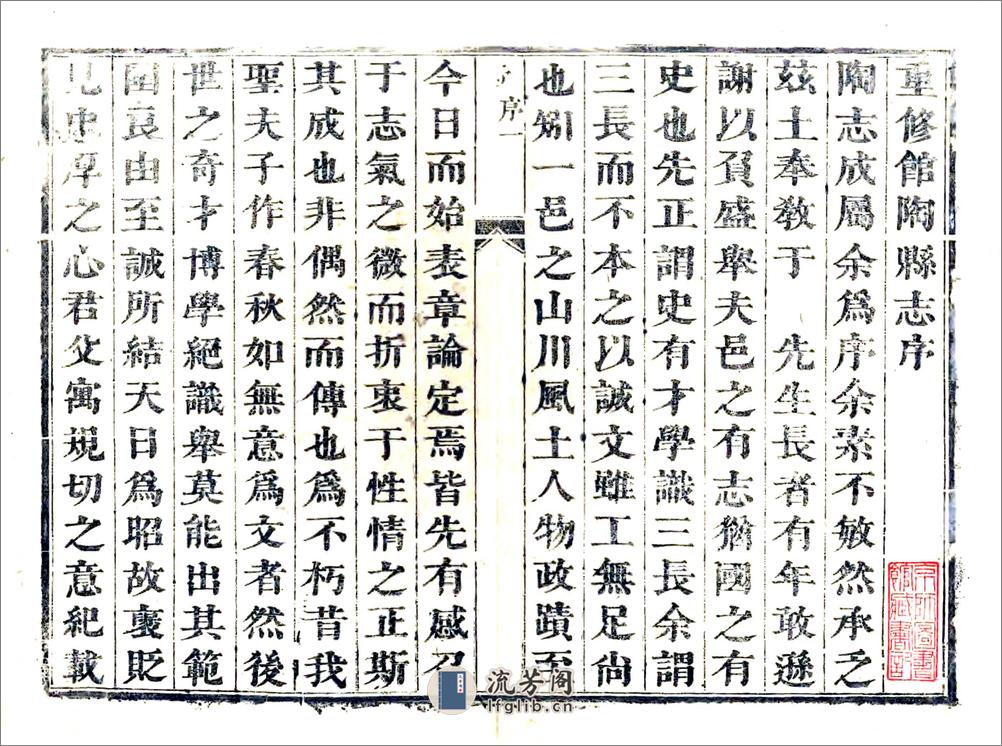 重修館陶縣志序
陶志成屬余爲序余素不敏然承乏
茲土奉敎于　先生長者有年敢遜
謝以負盛舉夫邑之有志猶國之有
史也先正謂史有才學識三長余謂
三長而不本之以誠文雖工無足尙
也矧一邑之山川風土人物政蹟至
序一
今日而始表章論定焉皆先有感召
于志氣之微而折衷于性情之正斯
其成也非偶然而傳也爲不朽昔我
聖夫子作春秋如無意爲文者然後
世之奇才博學絕識舉莫能出其範
圍良由至誠所結天日爲昭故褒貶
見忠厚之心君父寓規切之意紀載
流芳阁
lfglib.cn